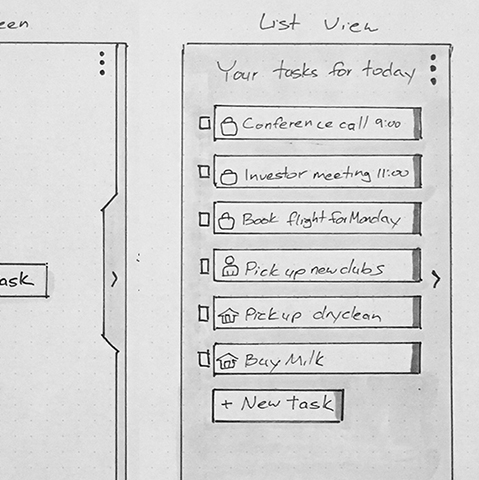 een
List View
Your tasks for today
Conference call 9:00
Investor meeting 11:00
Book flight for Monday
Pick up new clubs
Pick up dryclean
Buy Milk
+ New task
ask